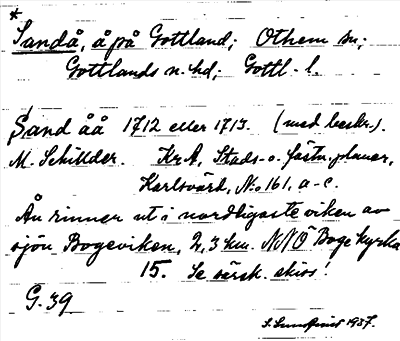 *
Sandå, å på Gottland; Othem sn;
Gottlands n. hd; Gottl. l.
Sand åå 1712 eller 1713. (med beskr.).
M. Schilder. KrA, Stads- o. fästn.planer,
Karlsvärd, No 161, a-c.
Ån rinner ut i nordligaste viken av
sjön Bogeviken, 2,3 km. NNÖ Boge kyrka
15. Se särsk. skiss!
G. 39
1937.